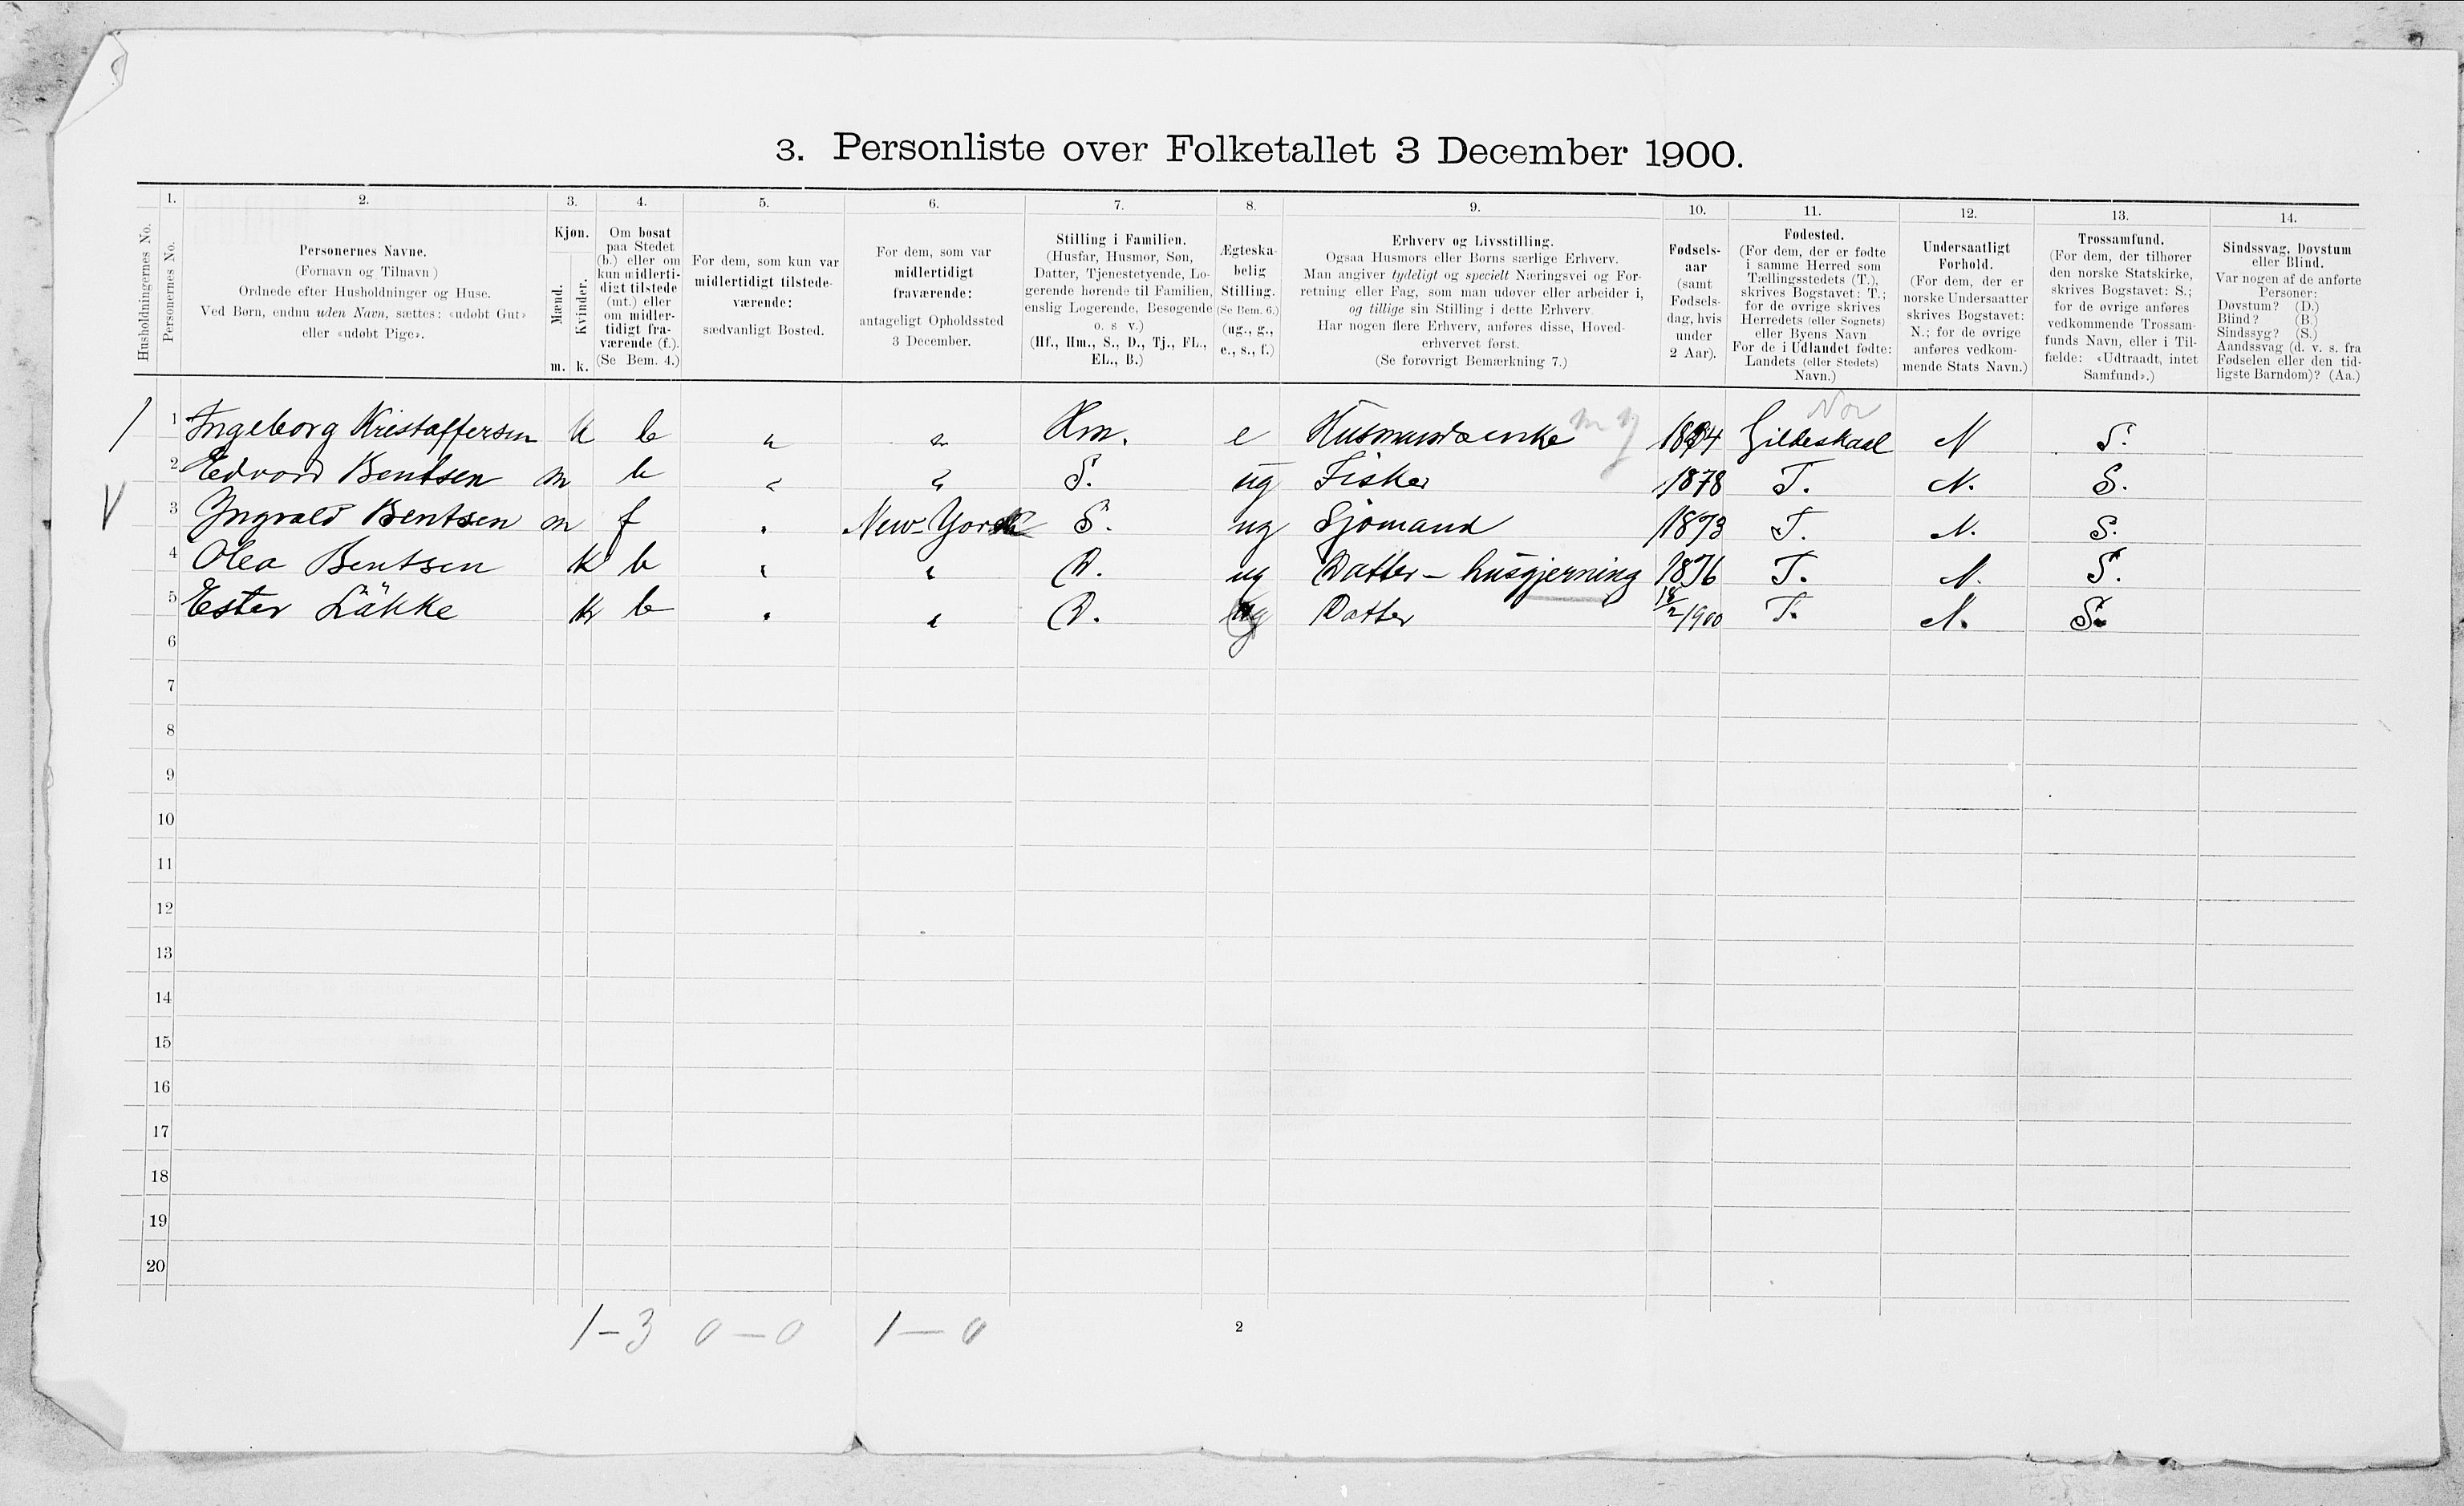 3. Personliste over Folketallet 3 December 1900.
1. 2. 3. 4. 5. 6. 7. 8. 9. 10. 11. 12. 13. 14.
Husholdningernes No.
Personernes No.
Personernes Navne.
(Fornavn og Tilnavn)
Ordnede efter Husholdninger og Huse.
Ved Børn, endnu uden Navn, sættes: «udøbt Gut»
eller «udøbt Pige».
Kjøn.
Mænd.
Kvinder.
m. k.
Om bosat
paa Stedet
(b.) eller om
kun midlerti-
digt tilstede
(mt.) eller
om midler-
tidigt fra-
værende (f.).
(Se Bem. 4.)
For dem, som kun var
midlertidigt tilstede-
værende:
sædvanligt Bosted.
For dem, som var
midlertidigt
fraværende:
antageligt Opholdssted
3 December.
Stilling i Familien.
(Husfar, Husmor, Søn,
Datter, Tjenestetyende, Lo-
gerende hørende til Familien,
enslig Logerende, Besøgende
o. s v.)
(Hf., Hm., S., D., Tj., FL.,
EL., B.)
Ægteska-
belig
Stilling.
(Se Bem. 6.)
(ug., g.,
e., s., f.)
Erhverv og Livsstilling.
Ogsaa Husmors eller Børns særlige Erhverv.
Man angiver tydeligt og specielt Næringsvei og For-
retning eller Fag, som man udøver eller arbeider i,
og tillige sin Stilling i dette Erhverv.
Har nogen flere Erhverv, anføres disse, Hoved-
erhvervet først.
(Se forøvrigt Bemærkning 7.)
Fødsels-
aar
(samt
Fødsels-
dag, hvis
under
2 Aar).
Fødested.
(For dem, der er fødte
i samme Herred som
Tællingsstedets (T.),
skrives Bogstavet: T.;
for de øvrige skrives
Herredets (eller Sognets)
eller Byens Navn
For de i Udlandet fødte:
Landets (eller Stedets)
Navn.)
Undersaatligt
Forhold.
(For dem, der er
norske Undersaatter
skrives Bogstavet:
N.; for de øvrige
anføres vedkom-
mende Stats Navn.)
Trossamfund.
(For dem, der tilhører
den norske Statskirke,
skrives Bogstavet: S.;
for de øvrige anføres
vedkommende Trossam-
funds Navn, eller i Til-
fælde: «Udtraadt, intet
Samfund».)
Sindssvag, Døvstum
eller Blind.
Var nogen af de anførte
Personer:
Døvstum? (D.)
Blind? (B.)
Sindssyg? (S.)
Aandssvag (d. v. s. fra
Fødselen eller den tid-
ligste Barndom)? (Aa.)
Nor
1 Ingeborg Kristoffersen k b " " Hm. e Husmandsenke 1834 Gildeskaal N S.
2 Edvard Bentsen m b " " S. ug Fisker 1878 T. N. S.
3 Ingvald Bentsen m f " New-York S. ug Sjömand 1873 T. N. S.
4 Olea Bentsen k b " " D. ug Datter - husgjerning 1876 T. N. S.
5 Ester Läkke k b " " D. ug Datter 18/2 1900 T. N. S.
6
7
8
9
10
11
12
13
14
15
16
17
18
19
20
1-3 0-0 1-0
2